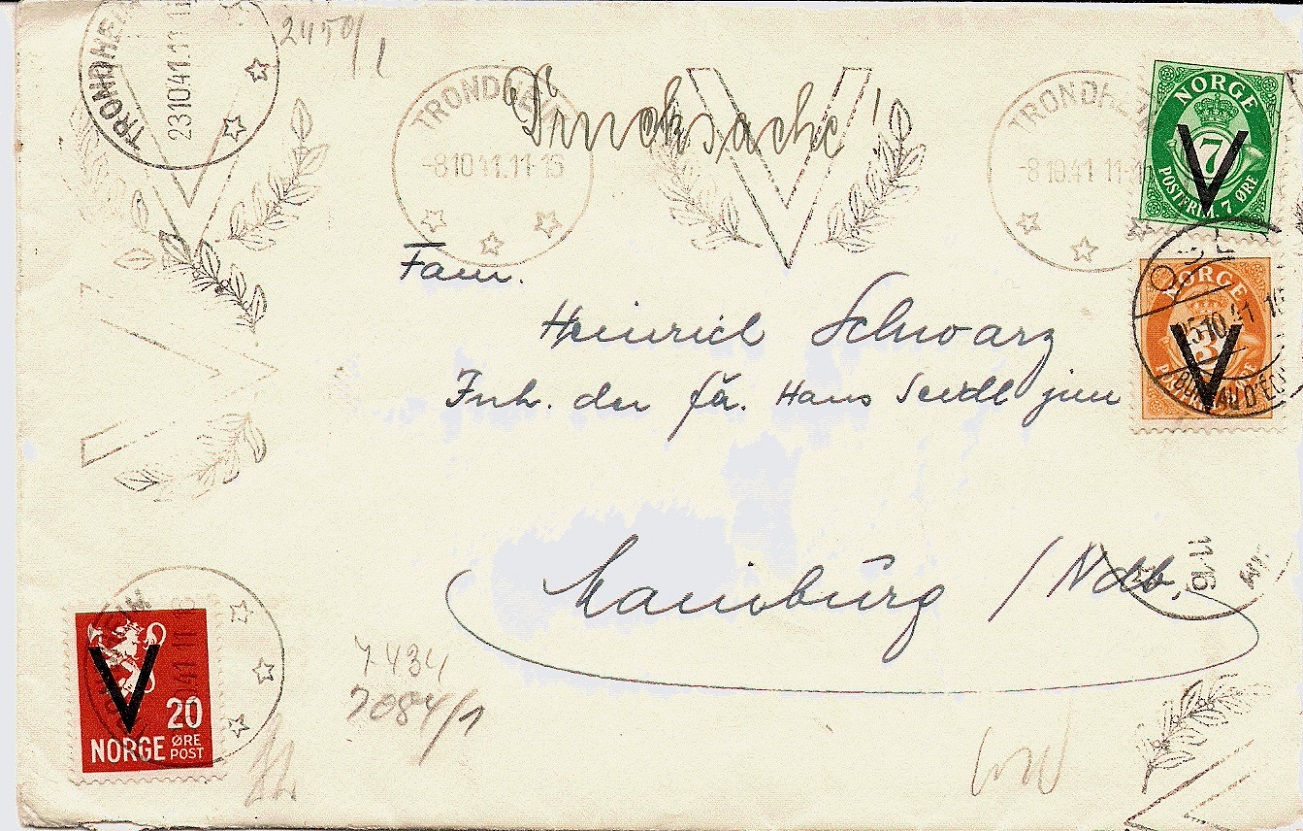 TRONDHEIM
23 10 41. 11
2450/1
TRONDHEIM
-8 10 41. 11-15
Drucksache!
V
TRONDHEIM
-8 10.41 11-1
NORGE
7
POSTFRIM. 7. ØRE
V
NORGE
3
V
OSLO
25.10.41 1
Fam.
Heinrich Schwarz
Inh. der fa. Hans Seidl jun
Mainburg /Ndb.
11 16
V
20
NORGE ØRE
POST
41 11-1
7434
7084/1